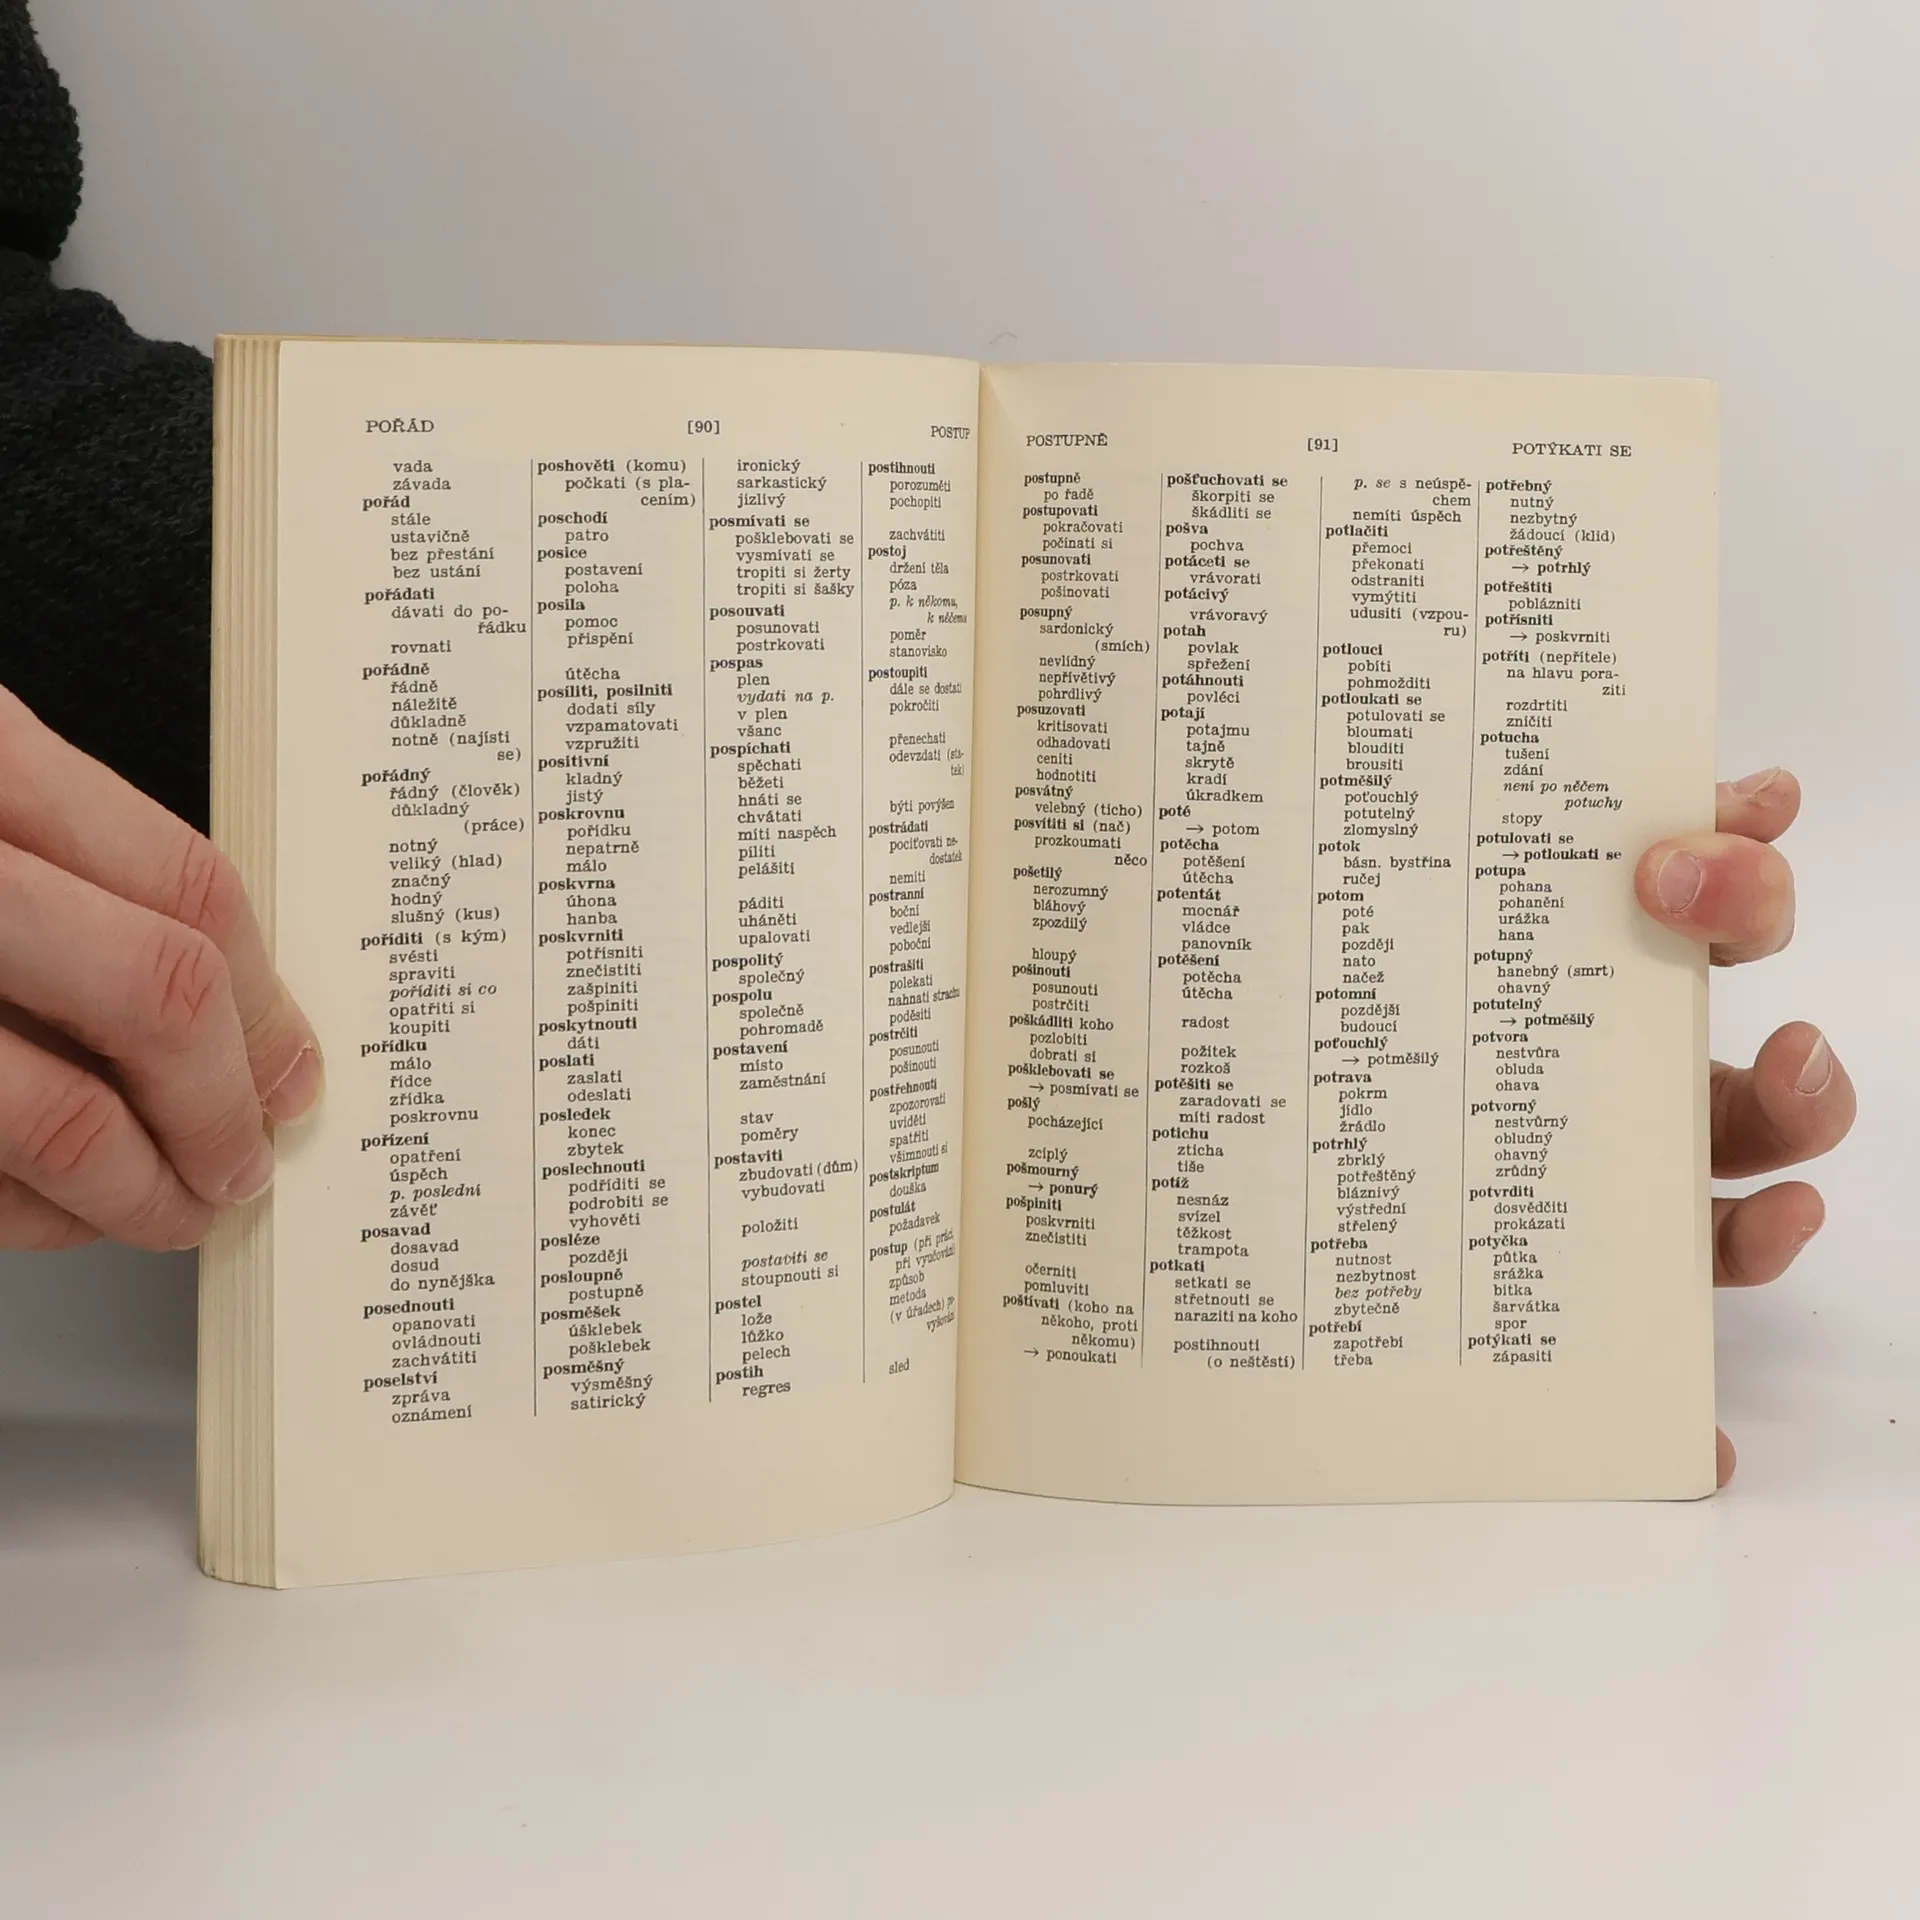 POŘÁD [90] POSTUP
vada
závada
pořád
stále
ustavičně
bez přestání
bez ustání
pořádati
dávati do po-
řádku
rovnati
pořádně
řádně
náležitě
důkladně
notně (najísti
se)
pořádný
řádný (člověk)
důkladný
(práce)
notný
veliký (hlad)
značný
hodný
slušný (kus)
poříditi (s kým)
svésti
spraviti
poříditi si co
opatřiti si
koupiti
pořídku
málo
řídce
zřídka
poskrovnu
pořízení
opatření
úspěch
p. poslední
závěť
posavad
dosavad
dosud
do nynějška
posednouti
opanovati
ovládnouti
zachvátiti
poselství
zpráva
oznámení
poshověti (komu)
počkati (s pla-
cením)
poschodí
patro
posice
postavení
poloha
posila
pomoc
přispění
útěcha
posíliti, posilniti
dodati síly
vzpamatovati
vzpružiti
positivní
kladný
jistý
poskrovnu
pořídku
nepatrně
málo
poskvrna
úhona
hanba
poskvrniti
potřísniti
znečistiti
zašpiniti
pošpiniti
poskytnouti
dáti
poslati
zaslati
odeslati
posledek
konec
zbytek
poslechnouti
podříditi se
podrobiti se
vyhověti
posléze
později
posloupně
postupně
posměšek
úšklebek
pošklebek
posměšný
výsměšný
satirický
ironický
sarkastický
jizlivý
posmívati se
pošklebovati se
vysmívati se
tropiti si žerty
tropiti si šašky
posouvati
posunovati
postrkovati
pospas
plen
vydati na p.
v plen
všanc
pospíchati
spěchati
běžeti
hnáti se
chvátati
míti naspěch
píliti
pelášiti
páditi
uháněti
upalovati
pospolitý
společný
pospolu
společně
pohromadě
postavení
místo
zaměstnání
stav
poměry
postaviti
zbudovati (dům)
vybudovati
položiti
postaviti se
stoupnouti si
postel
lože
lůžko
pelech
postih
regres
postihnouti
porozuměti
pochopiti
zachvátiti
postoj
držení těla
póza
p. k někomu,
k něčemu
poměr
stanovisko
postoupiti
dále se dostati
pokročiti
přenechati
odevzdati (sta-
tek)
býti povýšen
postrádati
pociťovati ne-
dostatek
nemíti
postranní
boční
vedlejší
poboční
postrašiti
polekati
nahnati strachu
poděsiti
postrčiti
posunouti
pošinouti
postřehnouti
zpozorovati
uviděti
spatřiti
všimnouti si
postskriptum
douška
postulát
požadavek
postup (při práci,
při vyučování)
způsob
metoda
(v úřadech) po-
vyšování
sled
POSTUPNĚ [91] POTÝKATI SE
postupně
po řadě
postupovati
pokračovati
počínati si
posunovati
postrkovati
pošinovati
posupný
sardonický
(smích)
nevlídný
nepřívětivý
pohrdlivý
posuzovati
kritisovati
odhadovati
ceniti
hodnotiti
posvátný
velebný (ticho)
posvítiti si (nač)
prozkoumati
něco
pošetilý
nerozumný
bláhový
zpozdilý
hloupý
pošinouti
posunouti
postrčiti
poškádliti koho
pozlobiti
dobrati si
pošklebovati se
→ posmívati se
pošlý
pocházející
zcíplý
pošmourný
→ ponurý
pošpiniti
poskvrniti
znečistiti
očerniti
pomluviti
poštívati (koho na
někoho, proti
někomu)
→ ponoukati
pošťuchovati se
škorpiti se
škádliti se
pošva
pochva
potáceti se
vrávorati
potácivý
vrávoravý
potah
povlak
spřežení
potáhnouti
povléci
potají
potajmu
tajně
skrytě
kradí
úkradkem
poté
→ potom
potěcha
potěšení
útěcha
potentát
mocnář
vládce
panovník
potěšení
potěcha
útěcha
radost
požitek
rozkoš
potěšiti se
zaradovati se
míti radost
potichu
zticha
tiše
potíž
nesnáz
svízel
těžkost
trampota
potkati
setkati se
střetnouti se
naraziti na koho
postihnouti
(o neštěstí)
p. se s neúspě-
chem
nemíti úspěch
potlačiti
přemoci
překonati
odstraniti
vymýtiti
udusiti (vzpou-
ru)
potlouci
pobíti
pohmožditi
potloukati se
potulovati se
bloumati
blouditi
brousiti
potměšilý
poťouchlý
potutelný
zlomyslný
potok
básn. bystřina
ručej
potom
poté
pak
později
nato
načež
potomní
pozdější
budoucí
poťouchlý
→ potměšilý
potrava
pokrm
jídlo
žrádlo
potrhlý
zbrklý
potřeštěný
bláznivý
výstřední
střelený
potřeba
nutnost
nezbytnost
bez potřeby
zbytečně
potřebí
zapotřebí
třeba
potřebný
nutný
nezbytný
žádoucí (klid)
potřeštěný
→ potrhlý
potřeštiti
poblázniti
potřísniti
→ poskvrniti
potříti (nepřítele)
na hlavu pora-
ziti
rozdrtiti
zničiti
potucha
tušení
zdání
není po něčem
potuchy
stopy
potulovati se
→ potloukati se
potupa
pohana
pohanění
urážka
hana
potupný
hanebný (smrt)
ohavný
potutelný
→ potměšilý
potvora
nestvůra
obluda
ohava
potvorný
nestvůrný
obludný
ohavný
zrůdný
potvrditi
dosvědčiti
prokázati
potyčka
půtka
srážka
bitka
šarvátka
spor
potýkati se
zápasiti